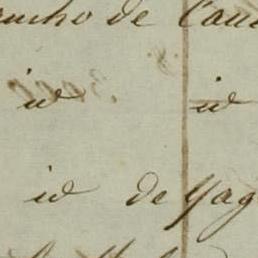 ancho de Cau
id id
id de Yag